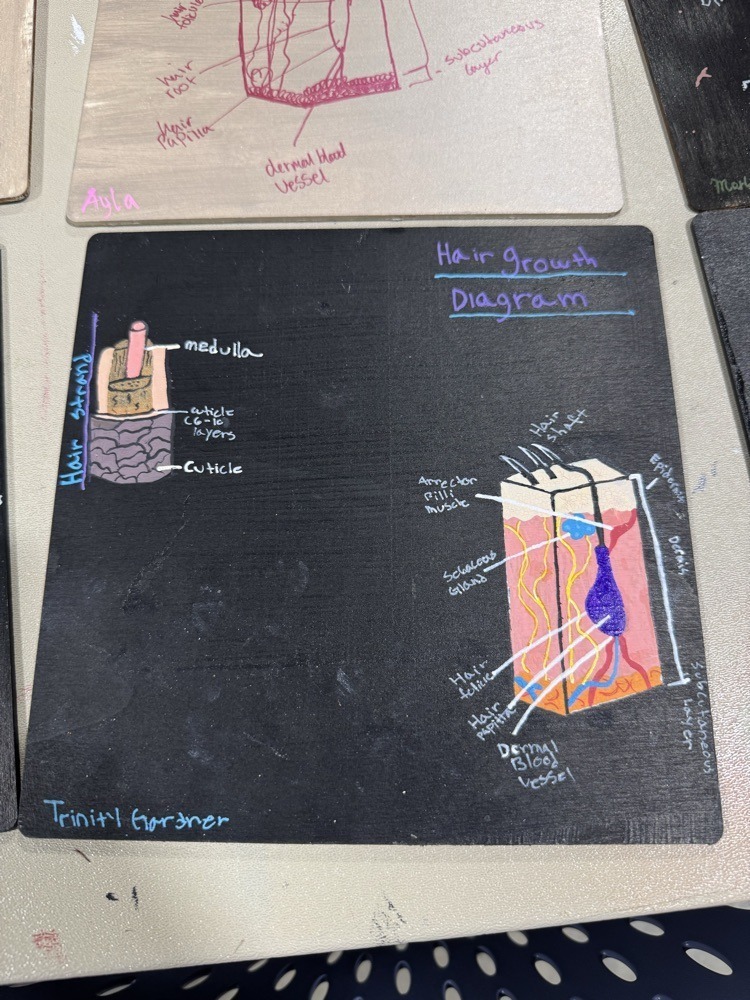 hair
root
hair
papilla
dermal blood
vessel
subcutaneous
layer
Ayla
Hair growth
Diagram
Hair Strand
medulla
cuticle
C6-10
layers
Cuticle
Hair
shaft
Arrector
Pilli
muscle
Sebaceous
Gland
Hair
Hair
Dermal
Blood
vessel
Dermis
Subcutaneous
Layer
Trinity Gardner